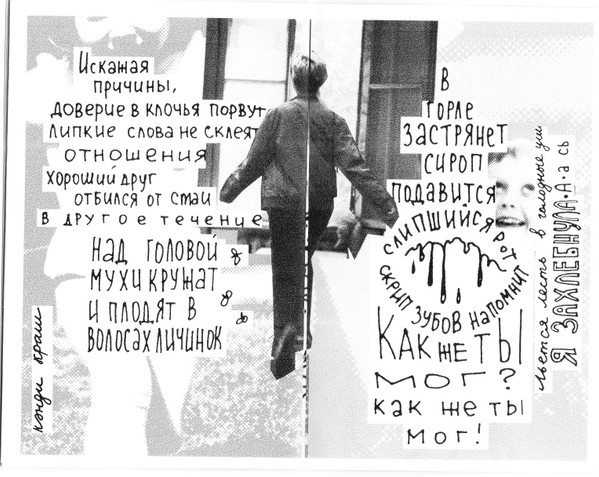 Искажая
причины,
доверие в клочья порвут
липкие слова не склеят
отношения
хороший друг
отбился от стаи
в другое течение
над головой
мухи кружат
и плодят в
волосах личинок
кэнди краш
в
горле
застрянет
сироп
подавится
слипшийся рот
скрип зубов напомнит
Как же ты
мог?
как же ты
мог!
льётся лесть в голодные уши
Я ЗАХЛЕБНУЛА·А·а сь